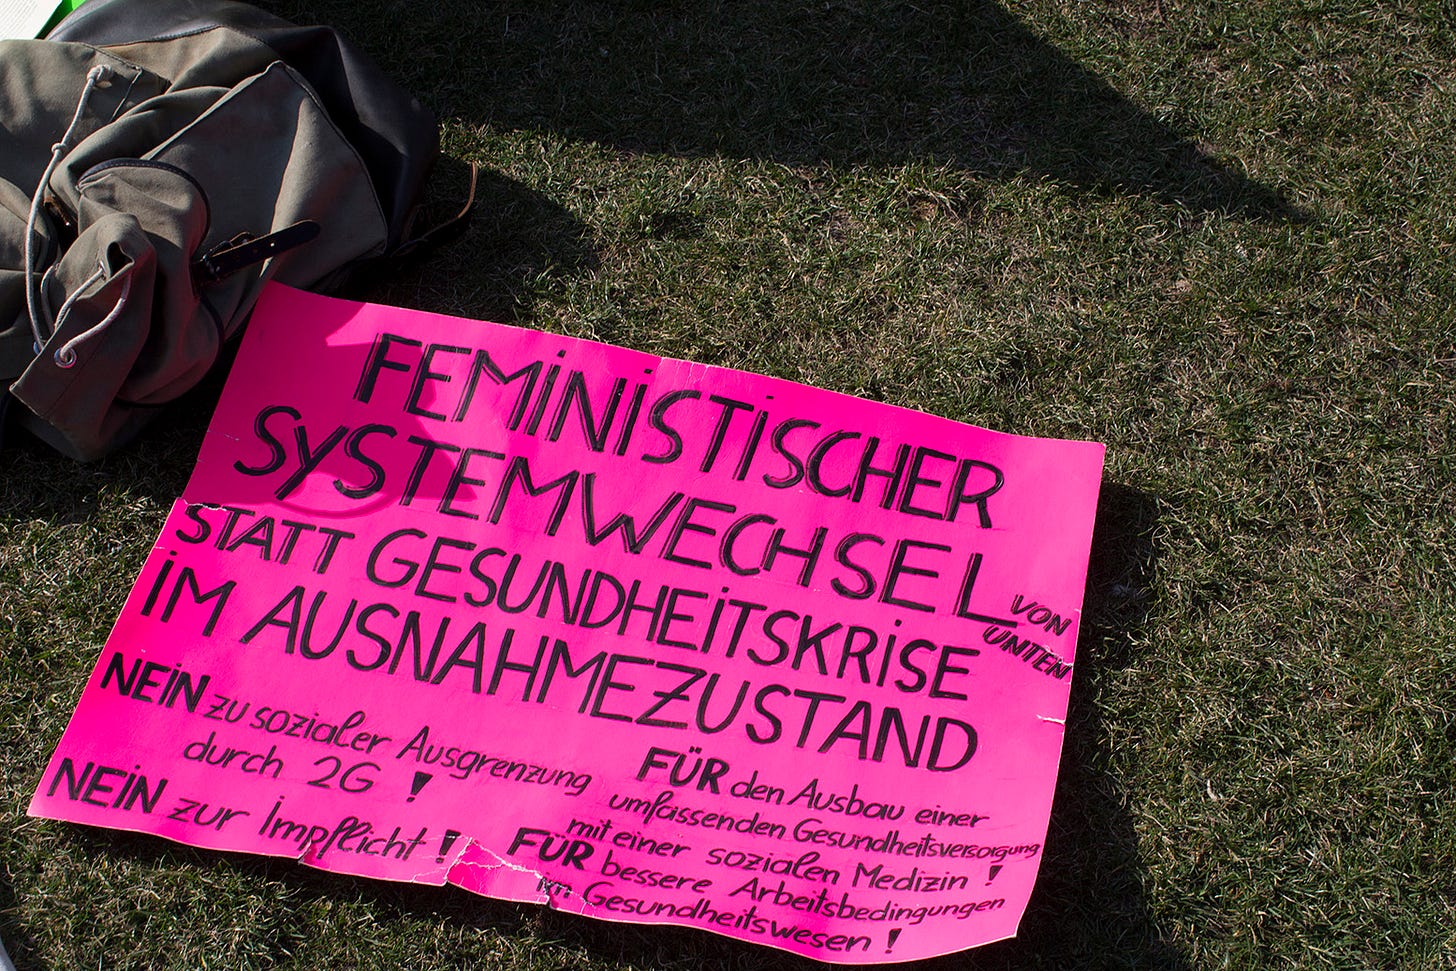 FEMINISTISCHER
SYSTEMWECHSEL VON
UNTEN
STATT GESUNDHEITSKRISE
IM AUSNAHMEZUSTAND
NEIN zu sozialer Ausgrenzung
durch 2G !
NEIN zur Impflicht !
FÜR den Ausbau einer
umfassenden Gesundheitsversorgung
mit einer sozialen Medizin !
FÜR bessere Arbeitsbedingungen
im Gesundheitswesen !